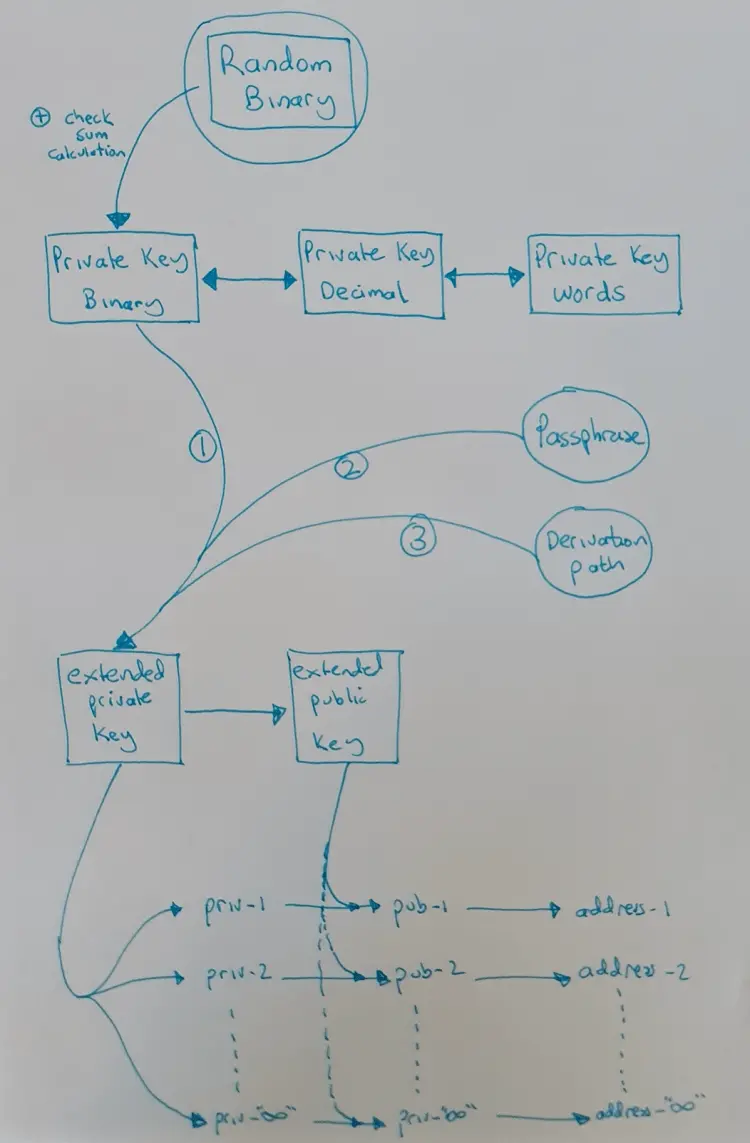 Random
Binary
+ check
sum
calculation
Private Key
Binary
Private Key
Decimal
Private Key
words
1
2
Passphrase
3
Derivation
path
extended
private
Key
extended
public
Key
priv-1
pub-1
address-1
priv-2
pub-2
address-2
priv-"∞"
priv-"∞"
address-"∞"